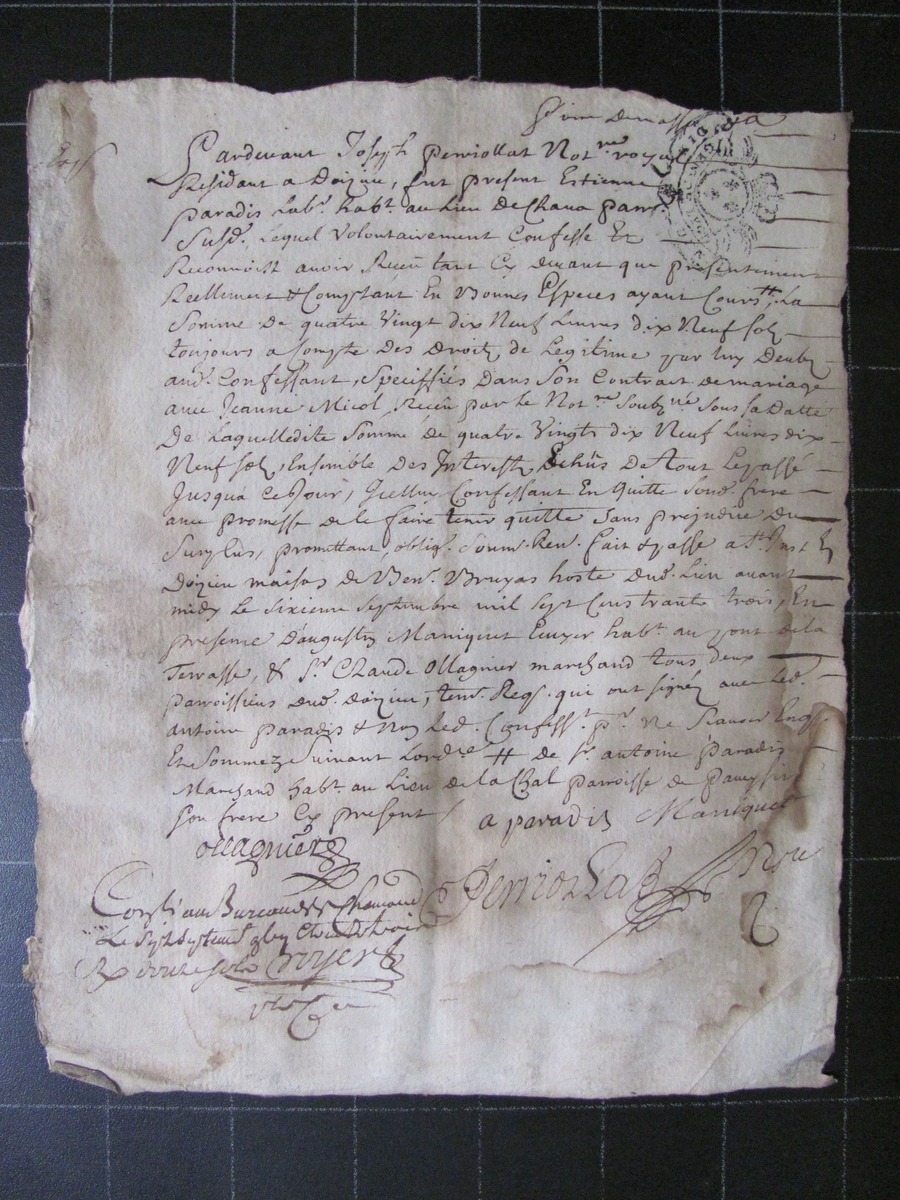 Pardevant Joseph perriollat Not.re royal
Residant a Doizieu, fut present Estienne
paradis lab.r hab.t au lieu De Chava parr.
Susd. lequel Volontairement Confesse Et
Reconnoist avoir Receu tant Cy devant que presentement
Reellement & Comptant En Bonnes Especes ayant Cours, La
Somme De quatre Vingt dix Neuf Livres dix Neuf sols
toujours a Compte Des Droits de Legitime par luy Deubz
aud. Confessant, Speciffiés Dans Son Contract de mariage
avec Jeanne Micol Receu par le Not.re Soub.né Sous sa Datte
De Laquelledite Somme De quatre Vingts dix Neuf Livres dix
Neuf sols, Ensemble Des Interests Dehüs De tout Le passé
Jusqua Ce Jour, Icelluy Confessant En Quitte Sond. frere
avec promesse de le faire tenir quitte Sans prejudice Du
Surplus, promettant, oblig. Soum. Ren. fait & passé a St. Just E
Doizieu maison de Ben. Bruyas hoste dud. Lieu avant
midy Le Sixieme Septembre mil Sept Cens trante trois, En
presence D'augustin Maniquet Ecuyer hab.t au pont dela
Terrasse, & Sr. Claude Ollagnier marchand tous deux
parroissiens dud. doizieu, tem. Reqs. qui ont signéz avec led.
antoine paradis & Non led. Confess.t p.r Ne Scavoir Enq.
Et Sommez Suivant Lord.re # de Sr. antoine paradis
Marchand hab.t au Lieu de la Chal parroisse de
Son frere Cy present /
a paradis Maniquet
ollagnier
Perriollat